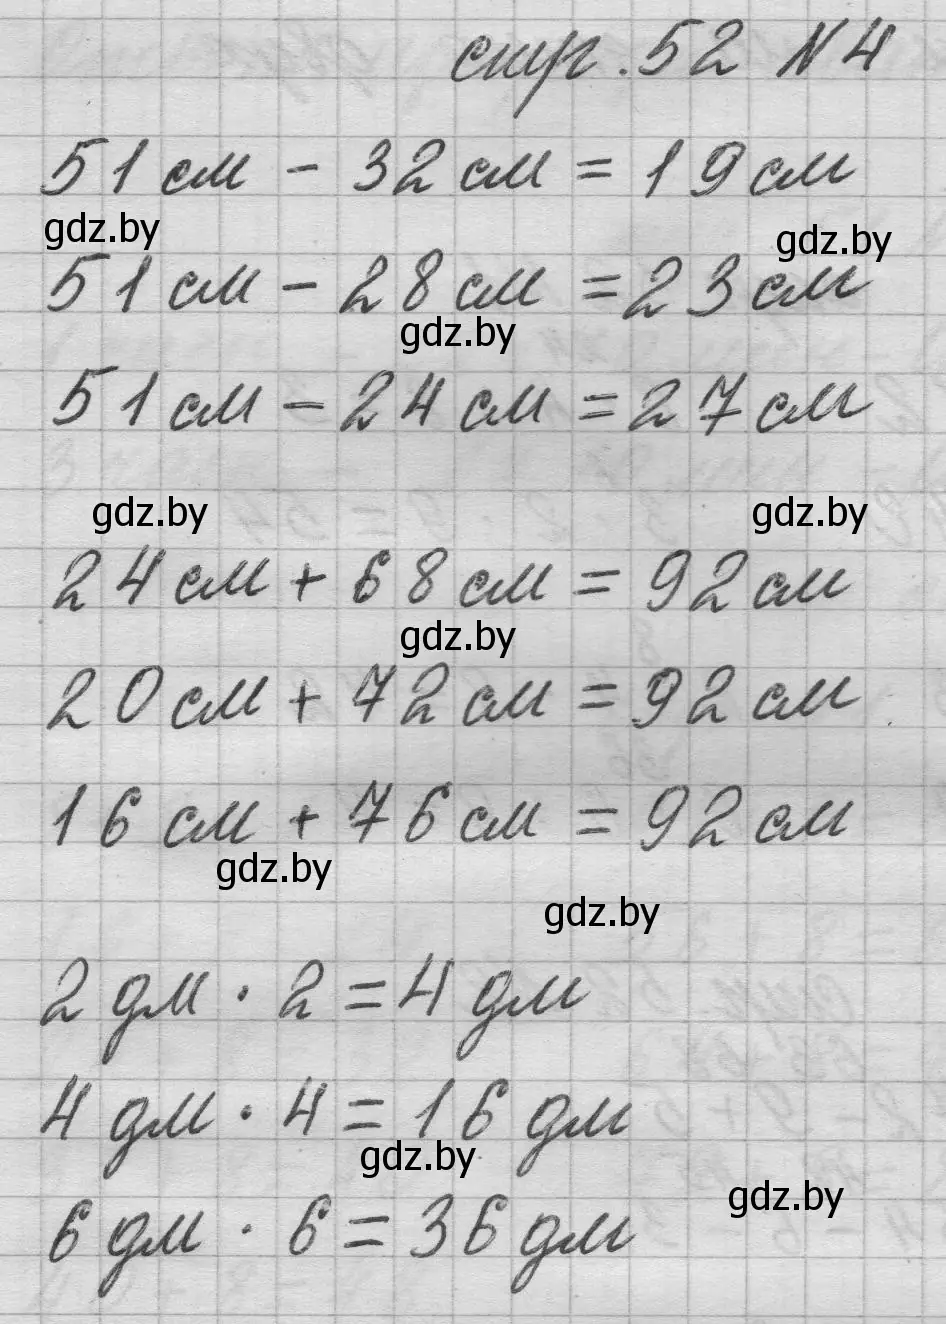 стр. 52 №4
51 см - 32 см = 19 см
gdz.by
gdz.by
51 см - 28 см = 23 см
gdz.by
51 см - 24 см = 27 см
gdz.by
gdz.by
24 см + 68 см = 92 см
gdz.by
20 см + 72 см = 92 см
16 см + 76 см = 92 см
gdz.by
gdz.by
2 дм · 2 = 4 дм
4 дм · 4 = 16 дм
gdz.by
gdz.by
6 дм · 6 = 36 дм